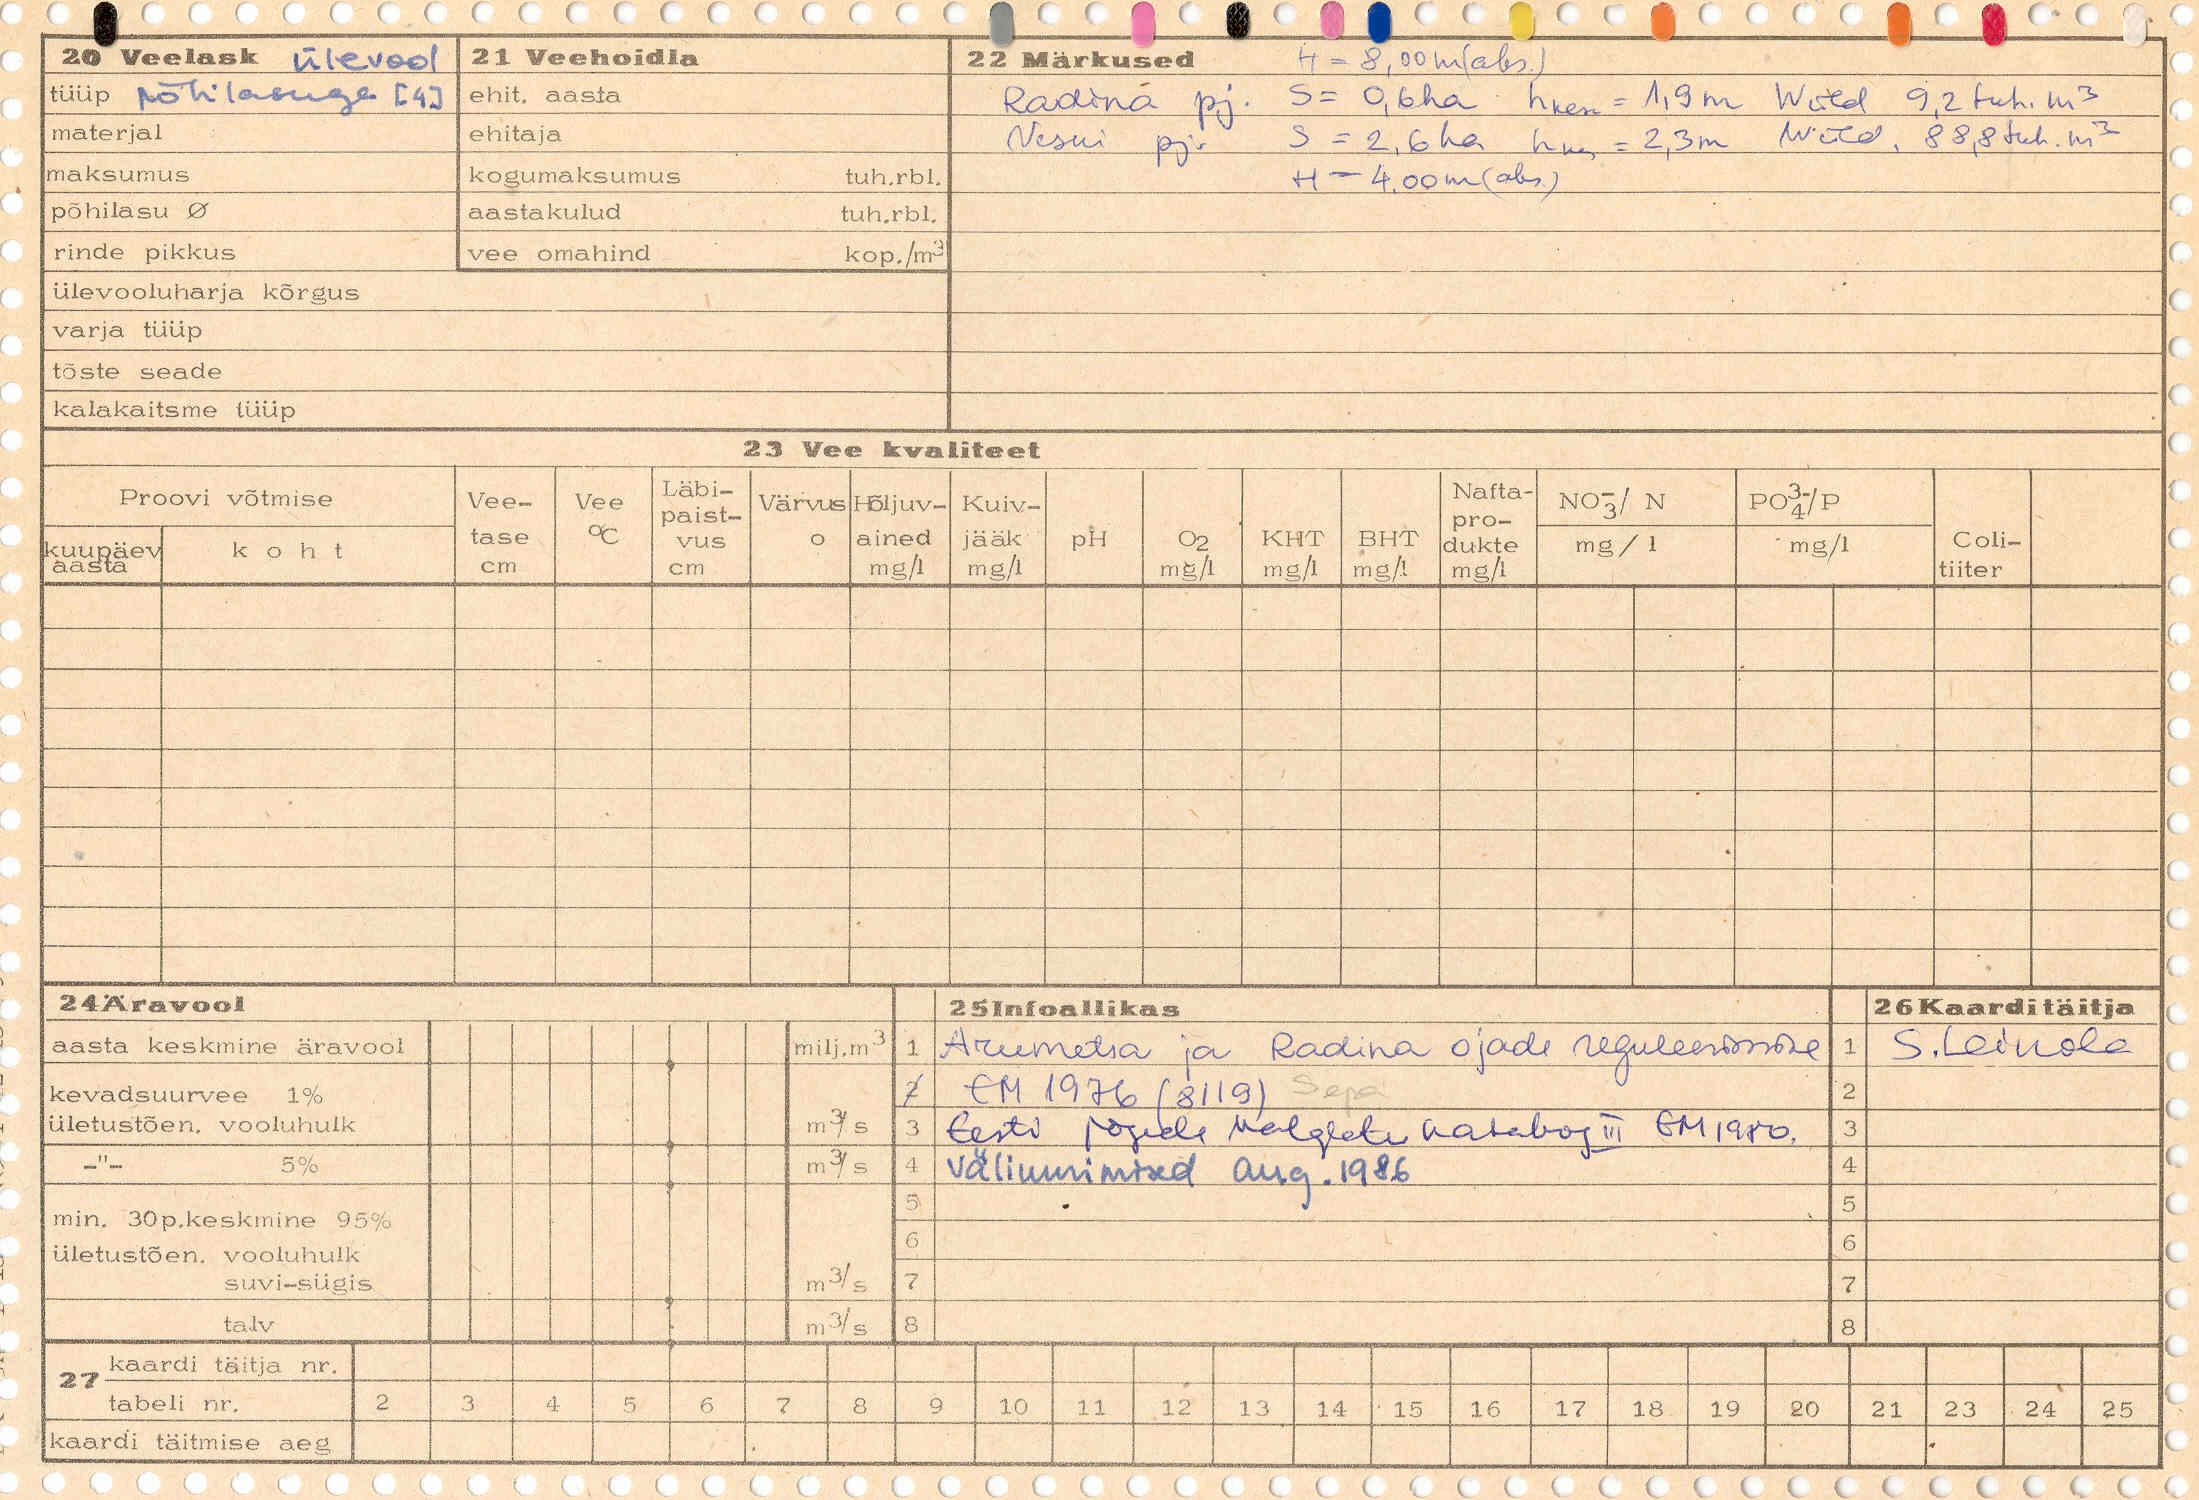 20 Veelask ülevool
tüüp põhilasuga [4]
materjal
maksumus
põhilasu Ø
rinde pikkus
ülevooluharja kõrgus
varja tüüp
tõste seade
kalakaitsme tüüp
21 Veehoidla
ehit. aasta
ehitaja
kogumaksumus tuh.rbl.
aastakulud tuh.rbl.
vee omahind kop./m³
22 Märkused H = 8,00 m (abs.)
Radina pj. S = 0,6 ha hkesk = 1,9 m Wüld 9,2 tuh. m³
Veski pj. S = 2,6 ha hkes = 2,3 m Wüld. 88,8 tuh. m³
H = 4.00 m (abs.)
23 Vee kvaliteet
Proovi võtmise
kuupäev aasta
koht
Vee-tase cm
Vee °C
Läbi-paist-vus cm
Värvus o
Hõljuv-ained mg/l
Kuiv-jääk mg/l
pH
O2 mg/l
KHT mg/l
BHT mg/l
Nafta-pro-dukte mg/l
NO3-/ N mg/l
PO4 3-/P mg/l
Coli-tiiter
24 Äravool
aasta keskmine äravool milj.m³
kevadsuurvee 1%
ületustõen. vooluhulk m³/s
-"- 5% m³/s
min. 30p.keskmine 95%
ületustõen. vooluhulk
suvi-sügis m³/s
talv m³/s
25 Infoallikas
1 Arumetsa ja Radina ojade reguleerimine
2 EM 1976 (8119) Sepa
3 Eesti jõgede kataloog III EM 1980.
4 Väliuurimised aug. 1986
5
6
7
8
26 Kaardi täitja
1 S. Leinola
2
3
4
5
6
7
8
27 kaardi täitja nr.
tabeli nr. 2 3 4 5 6 7 8 9 10 11 12 13 14 15 16 17 18 19 20 21 23 24 25
kaardi täitmise aeg